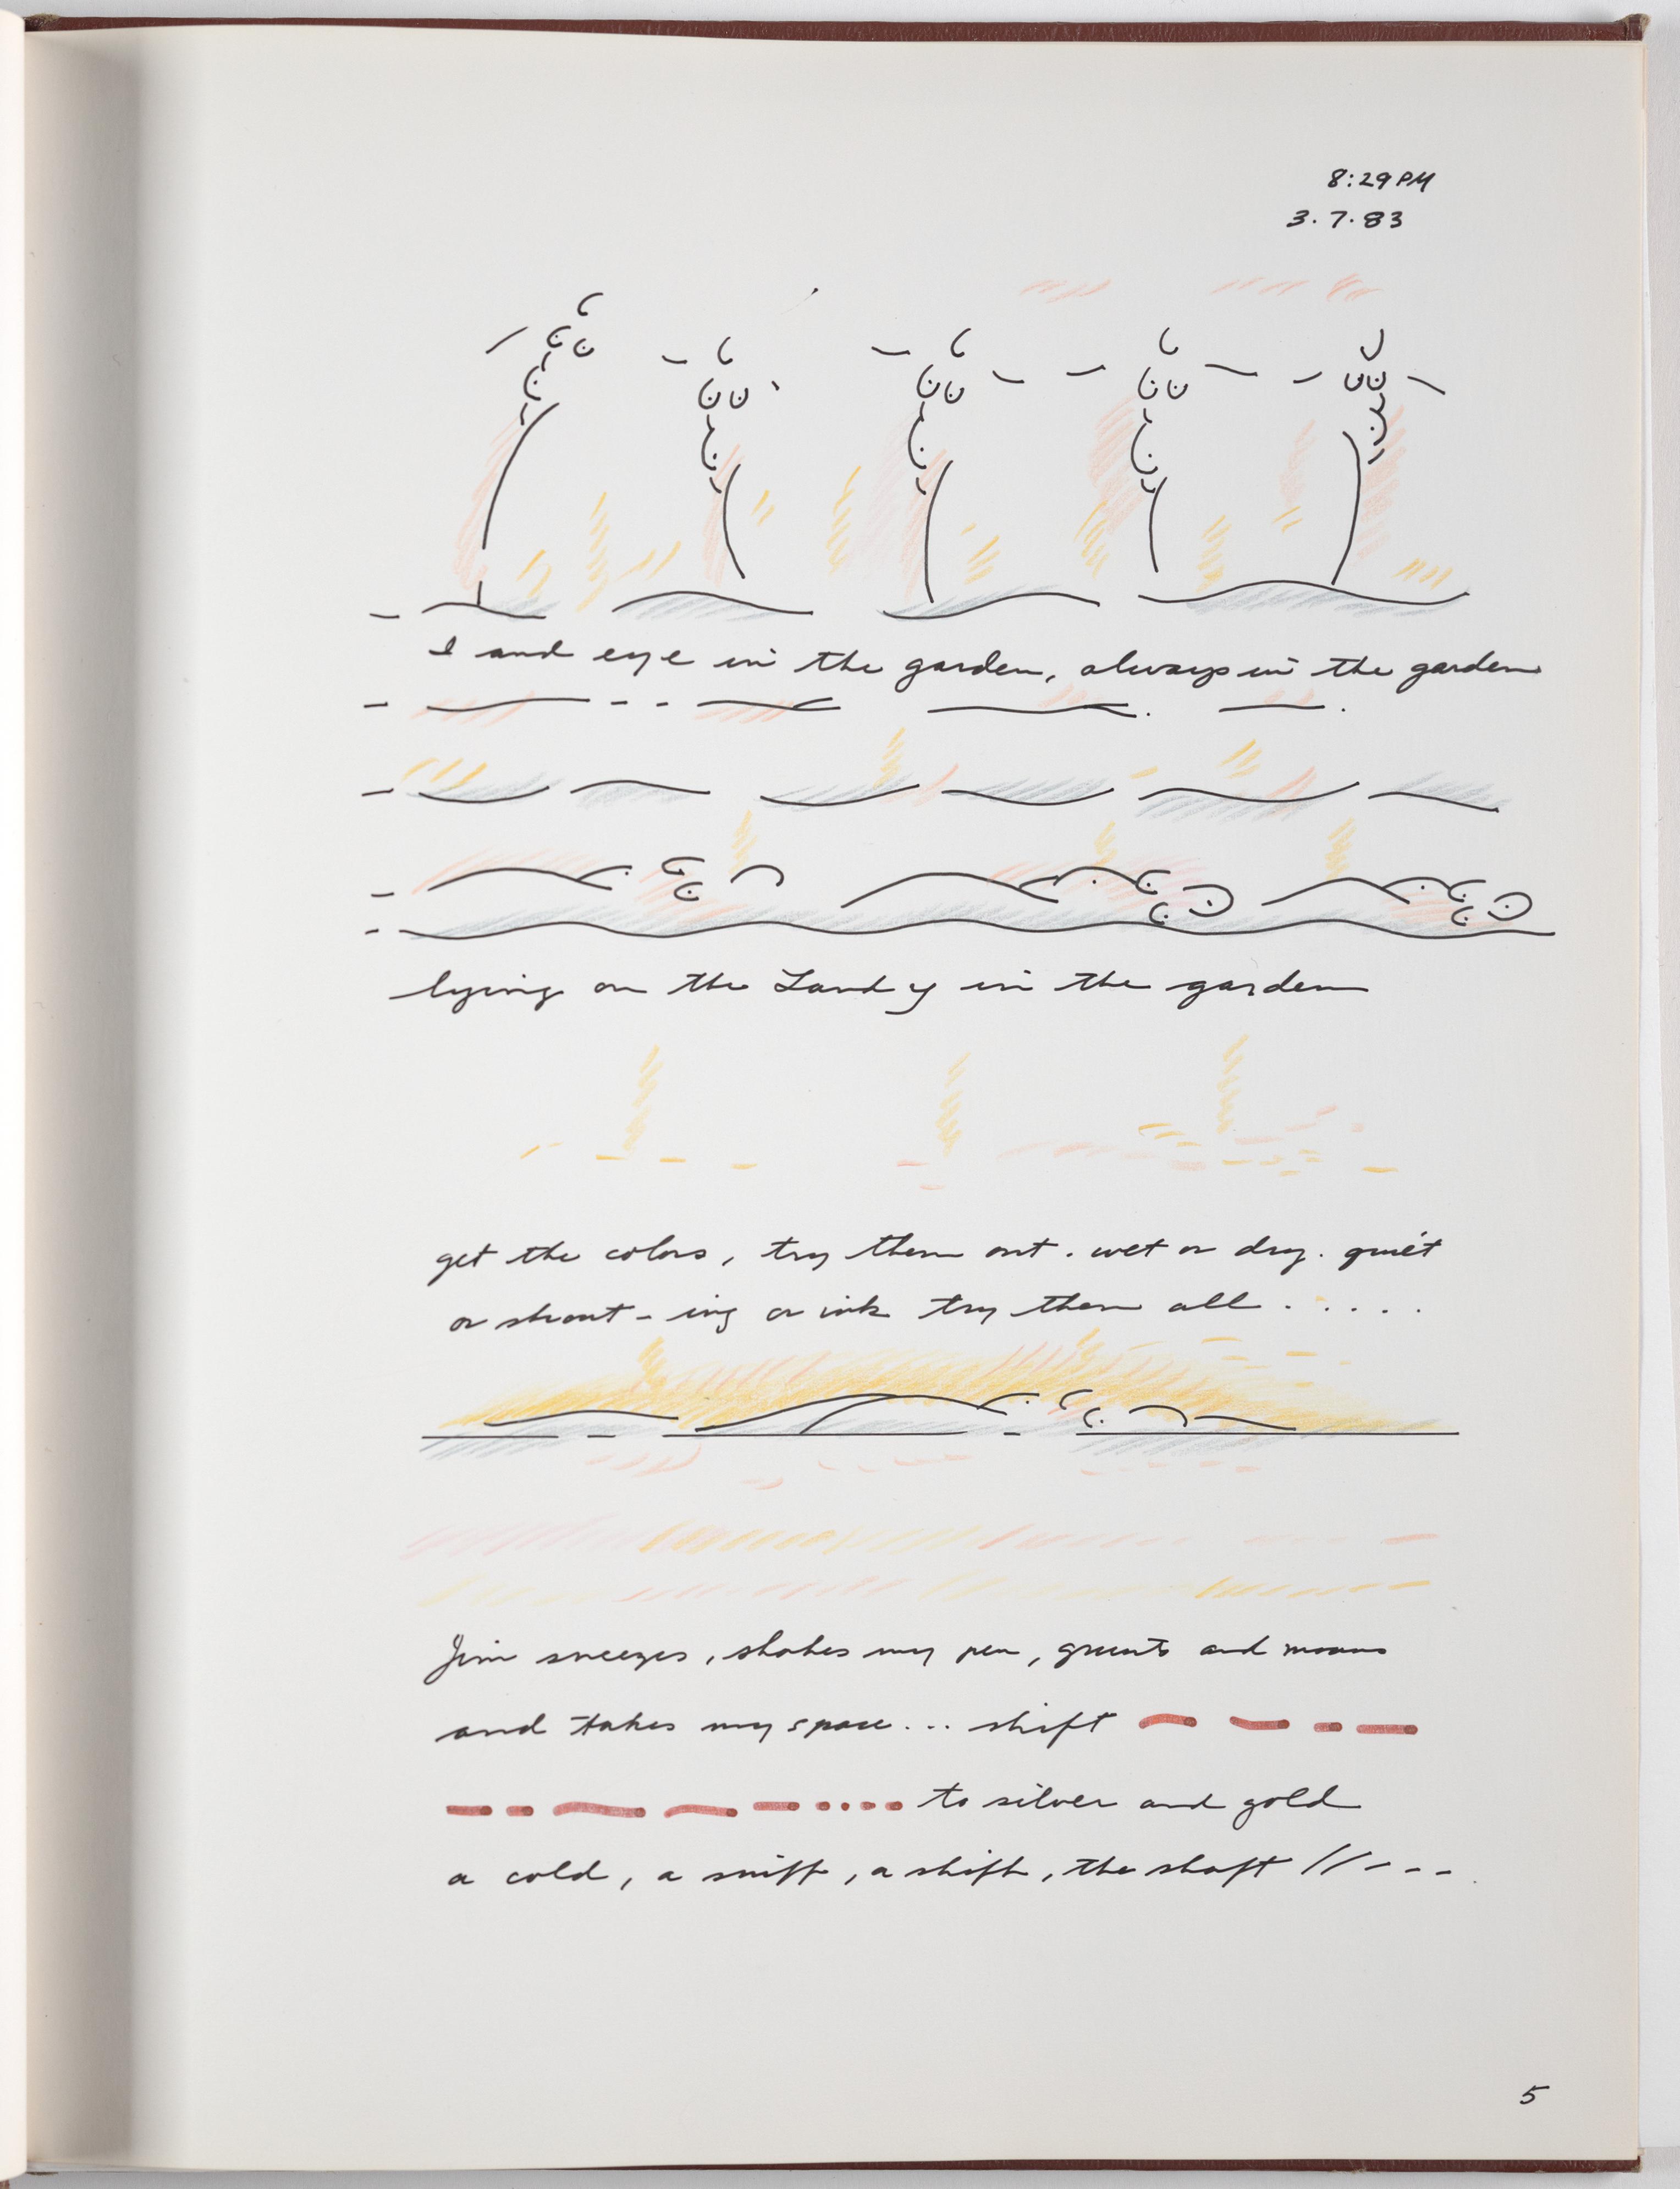 8:29 PM
3.7.83
I and eye in the garden, always in the garden
lying on the Land y in the garden
get the colors, try them out. wet or dry. quiet
or shout-ing or ink try them all . . . . .
Jim sneezes, shakes my pen, grunts and moans
and takes my space... shift
to silver and gold
a cold, a sniff, a shift, the shaft //---
5